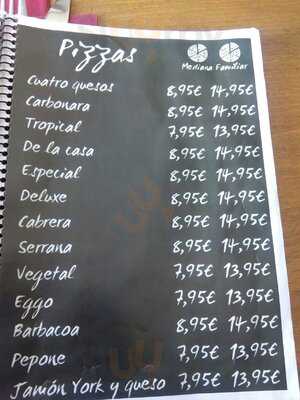 Pizzas
Mediana Familiar
Cuatro quesos 8,95€ 14,95€
Carbonara 8,95€ 14,95€
Tropical 7,95€ 13,95€
De la casa 8,95€ 14,95€
Especial 8,95€ 14,95€
Deluxe 8,95€ 14,95€
Cabrera 8,95€ 14,95€
Serrana 8,95€ 14,95€
Vegetal 7,95€ 13,95€
Eggo 7,95€ 13,95€
Barbacoa 8,95€ 14,95€
Pepone 7,95€ 13,95€
Jamón York y queso 7,95€ 13,95€